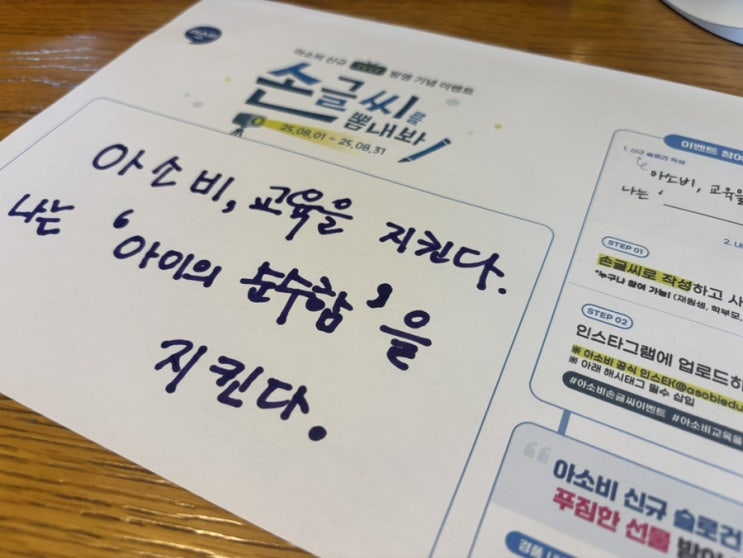 아소비 신규 방영 기념 이벤트
손글씨를
뽐내봐
25.08.01 ~ 25.08.31
아소비, 교육을 지킨다.
나는 '아이의 순수함'을
지킨다.
이벤트 참여
1. 신규 슬로건 작성
아소비, 교육을
나는 '
2. 내
STEP 01
손글씨로 작성하고 사
*누구나 참여 가능! (재원생, 학부모,
STEP 02
인스타그램에 업로드하
※ 아소비 공식 인스타(@asobiedu
※ 아래 해시태그 필수 삽입
#아소비손글씨이벤트 #아소비교육을
아소비 신규 슬로건
푸짐한 선물